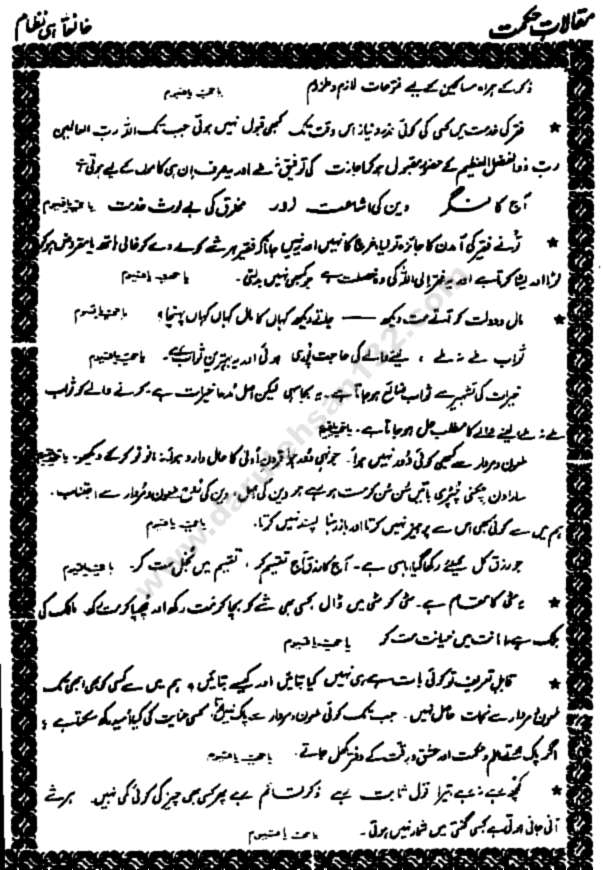 مقالاتِ حکمت
خانقاہی نظام
ذکر کے ہمراہ مساکین کے لیے فتوحات لازم و ملزوم یا حیّ یا قیّوم
★ فقر کی خدمت میں کسی کی کوئی نذر و نیاز اس وقت تک کبھی قبول نہیں ہوتی جب تک اللہ ربّ العالمین
ربّ ذوالفضل العظیم کے حضور مقبول ہو کر اجازت کی توفیق نہ ملے اور یہ صرف ان ہی کاموں کے لیے ہوتی ہے
آج کا لنگر دین کی اشاعت اور مخلوق کی بے لوث خدمت یا حیّ یا قیّوم
★ تُو نے فقیر کی آمدن کا جائزہ تو لیا، خرچ کا نہیں اور نہیں جانا کہ فقیر ہر شے کو دے دے کر خالی ہاتھ یا مقروض ہو کر
لوٹا اور لیٹا کرتا ہے اور یہ فقر الی اللہ کی وہ خصلت ہے جو کبھی نہیں بدلتی۔ یا حیّ یا قیّوم
★ مال و دولت کو آتے مت دیکھ — جاتے دیکھ کہاں کا مال کہاں کہاں پہنچا؟ یا حیّ یا قیّوم
ثواب ملے نہ ملے ، لینے والے کی حاجت پوری ہوئی اور یہ بہترین ثواب ہے۔ یا حیّ یا قیّوم
خیرات کی تشہیر سے ثواب ضائع ہو جاتا ہے۔ یہ بجا سہی لیکن اصل مدعا خیرات ہے۔ کرنے والے کو ثواب
ملے نہ ملے لینے والے کا مطلب حل ہو جاتا ہے۔ یا حیّ یا قیّوم
ملعون و مردار سے کبھی کوئی دُور نہیں ہوا۔ جونہی دُور ہوا قرونِ اُولیٰ کا حال وارد ہوا۔ نہ مانو تو کر کے دیکھو۔ یا حیّ یا قیّوم
سارا دن چکنی چپڑی باتیں سُن سُن کر مست ہو رہے ہو دین کی اصل، دین کی ملعون و مردار سے اجتناب۔
ہم میں سے کوئی بھی اس سے پرہیز نہیں کرتا اور باز رہنا پسند نہیں کرتا۔ یا حیّ یا قیّوم
جو رزق کل کیلئے رکھا گیا، باسی ہے۔ آج کا رزق آج تقسیم کر ، تقسیم میں بُخل مت کر۔ یا حیّ یا قیّوم
★ یہ مٹی کا مقام ہے۔ مٹی کو مٹی میں ڈال کسی بھی شے کو بچا کر مت رکھ اور چھپا کر مت رکھ مالک کی
ملک ہے، امانت میں خیانت مت کر یا حیّ یا قیّوم
★ قابلِ تعریف تو کوئی بات ہے ہی نہیں کیا بتائیں اور کیسے بتائیں؟ ہم میں سے کسی کو بھی ابھی تک
ملعون و مردار سے نجات حاصل نہیں۔ جب تک کوئی ملعون و مردار سے پاک نہیں ہوتا، کسی عنایت کی کیا اُمید رکھ سکتا ہے؟
اگر پاک ہوتے علم و حکمت اور عشق و رقت کے دفتر کھل جاتے۔ یا حیّ یا قیّوم
★ کچھ رہے نہ رہے تیرا قول ثابت رہے ذکر قائم رہے پھر کسی بھی چیز کی کوئی کمی نہیں۔ ہر شے
آنی جانی ہوتی ہے کسی گنتی میں شمار نہیں ہوتی۔ یا حیّ یا قیّوم
www.darulehsan122.com